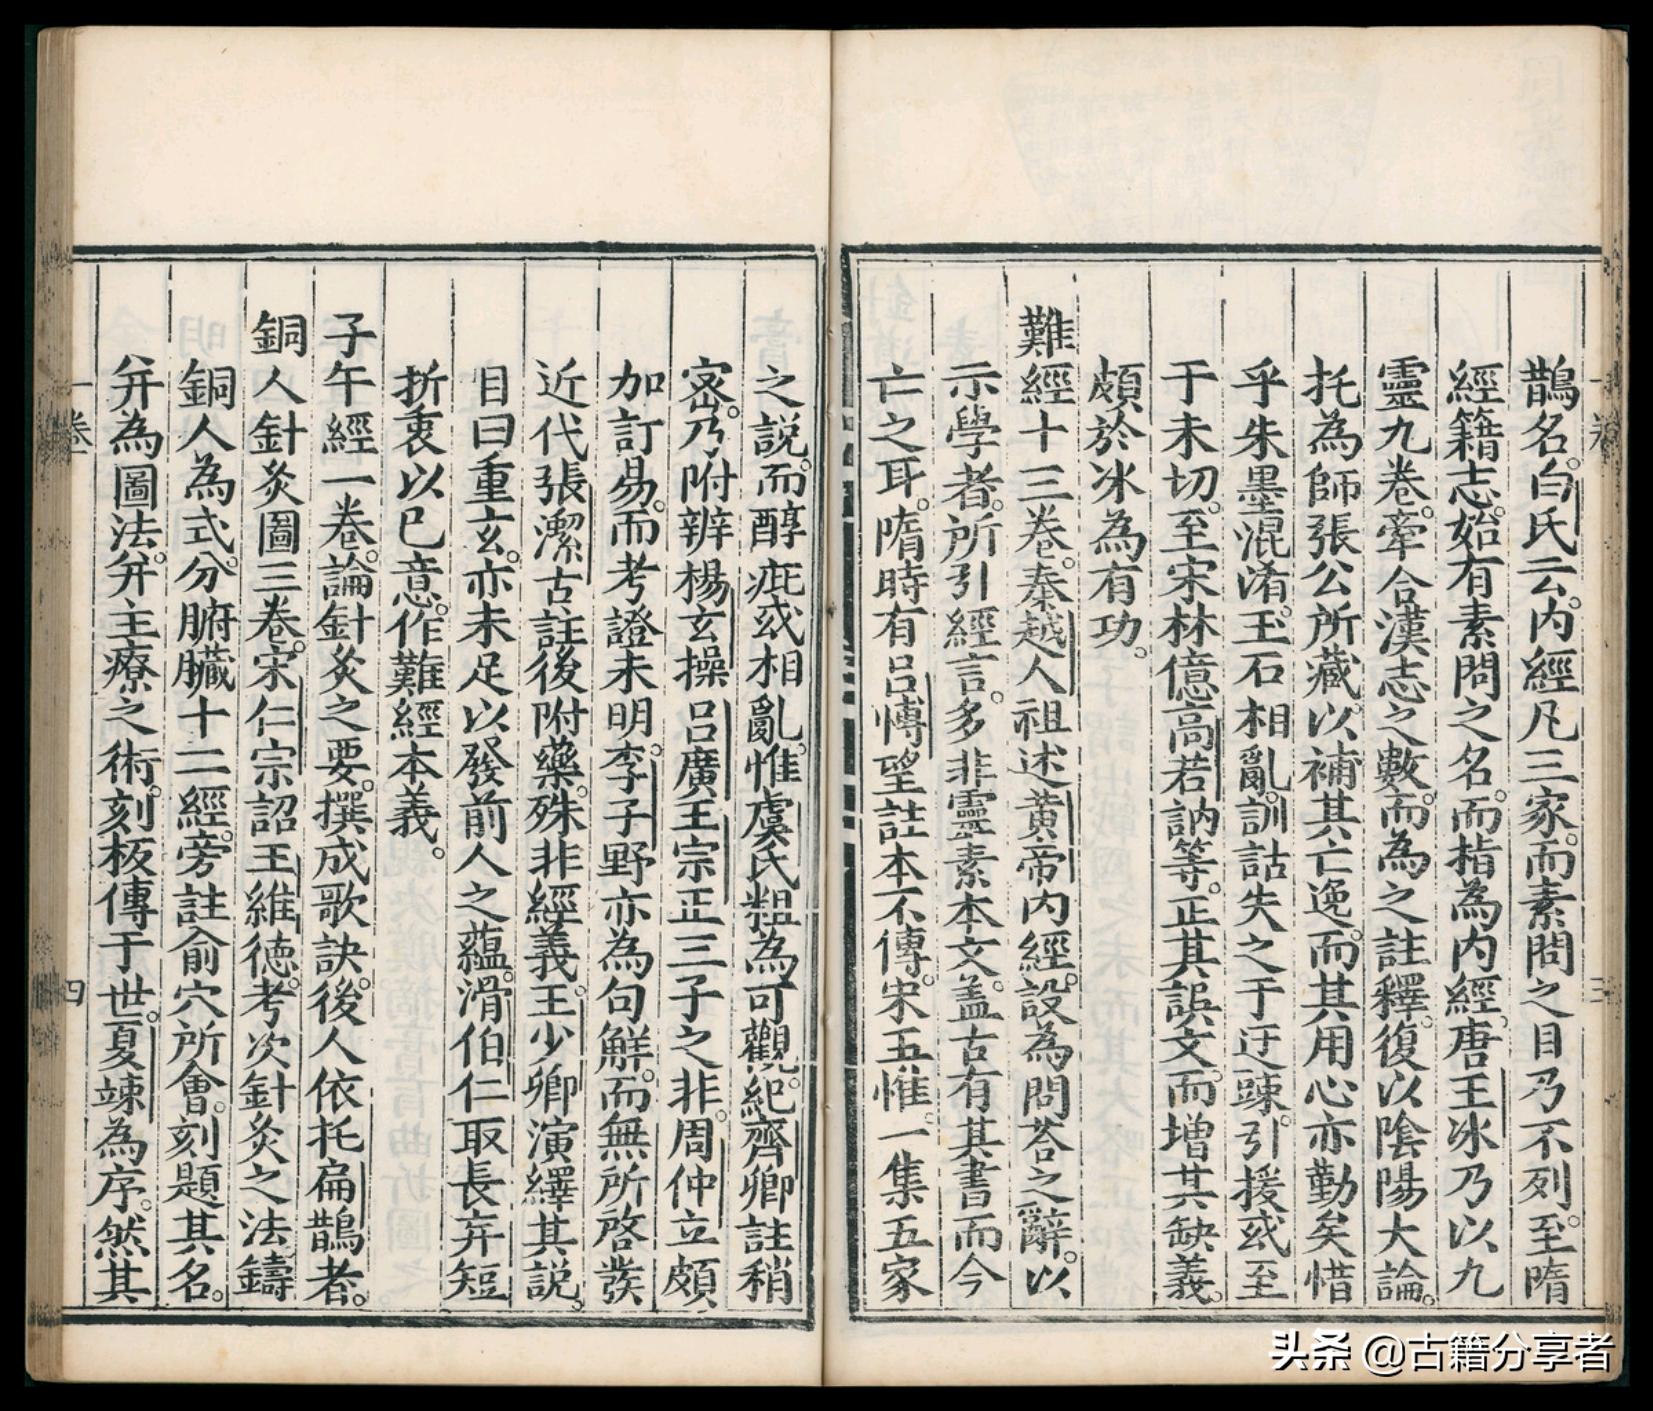 鵲名。白氏云。内經凡三家。而素問之目乃不列。至隋
經籍志。始有素問之名。而指為内經。唐王冰乃以九
靈九卷。牽合漢志之數。而為之註釋。復以陰陽大論。
托為師張公所藏。以補其亡逸。而其用心亦勤矣惜
乎朱墨混淆。玉石相亂。訓詁失之于迂踈。引援或至
于未切。至宋林億高若訥等。正其誤文。而增其缺義。
頗於冰為有功。
難經十三卷。秦越人祖述黄帝内經。設為問荅之辭。以
示學者。所引經言。多非靈素本文。盖古有其書而今
亡之耳。隋時有吕慱望註本不傳。宋王惟一集五家
之説。而醇疵或相亂。惟虞氏粗為可觀。紀齊卿註稍
宻。乃附辨楊玄操吕廣王宗正三子之非。周仲立頗
加訂易。而考證未明。李子野亦為句解。而無所啓發
近代張潔古註後附藥。殊非經義。王少卿演繹其説。
目曰重玄。亦未足以發前人之蘊。滑伯仁取長弃短
折衷以已意。作難經本義。
子午經一卷。論針灸之要。撰成歌訣。後人依托扁鵲者。
銅人針灸圖三卷。宋仁宗詔王維徳。考次針灸之法鑄
銅人為式。分腑臓十二經。旁註俞穴所會。刻題其名。
并為圖法。并主療之術。刻板傳于世。夏竦為序。然其
一卷
四
头条 @古籍分享者